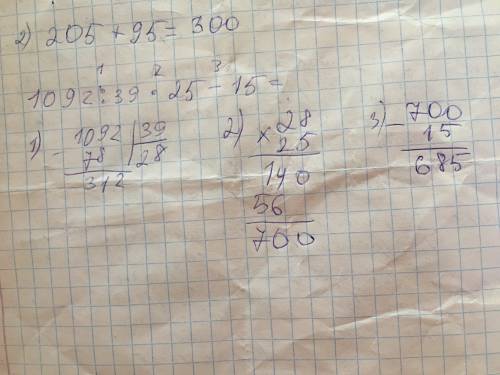 2) 205 + 95 = 300
1 2 3
1092 : 39 · 25 - 15 =
1) - 1092 | 39
78 | 28
312
2) × 28
25
140
56
700
3) - 700
15
685